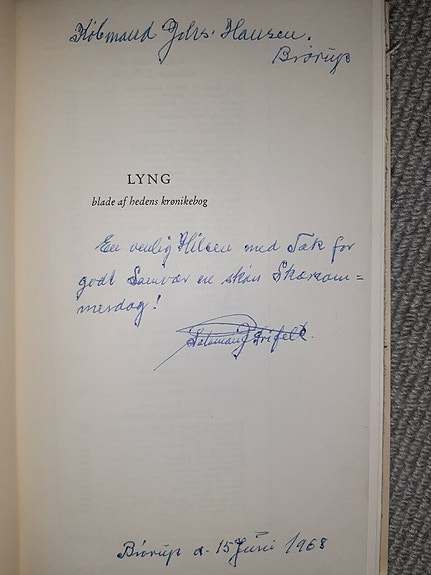 Købmand Johs. Hansen.
Brørup
LYNG
blade af hedens krønikebog
En venlig Hilsen med Tak for
godt Samvær en skøn Skærsom=
merdag!
Salomon J. Frifelt.
Brørup d. 15 Juni 1968